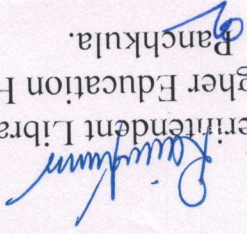 erintendent Libra
gher Education H
Panchkula.